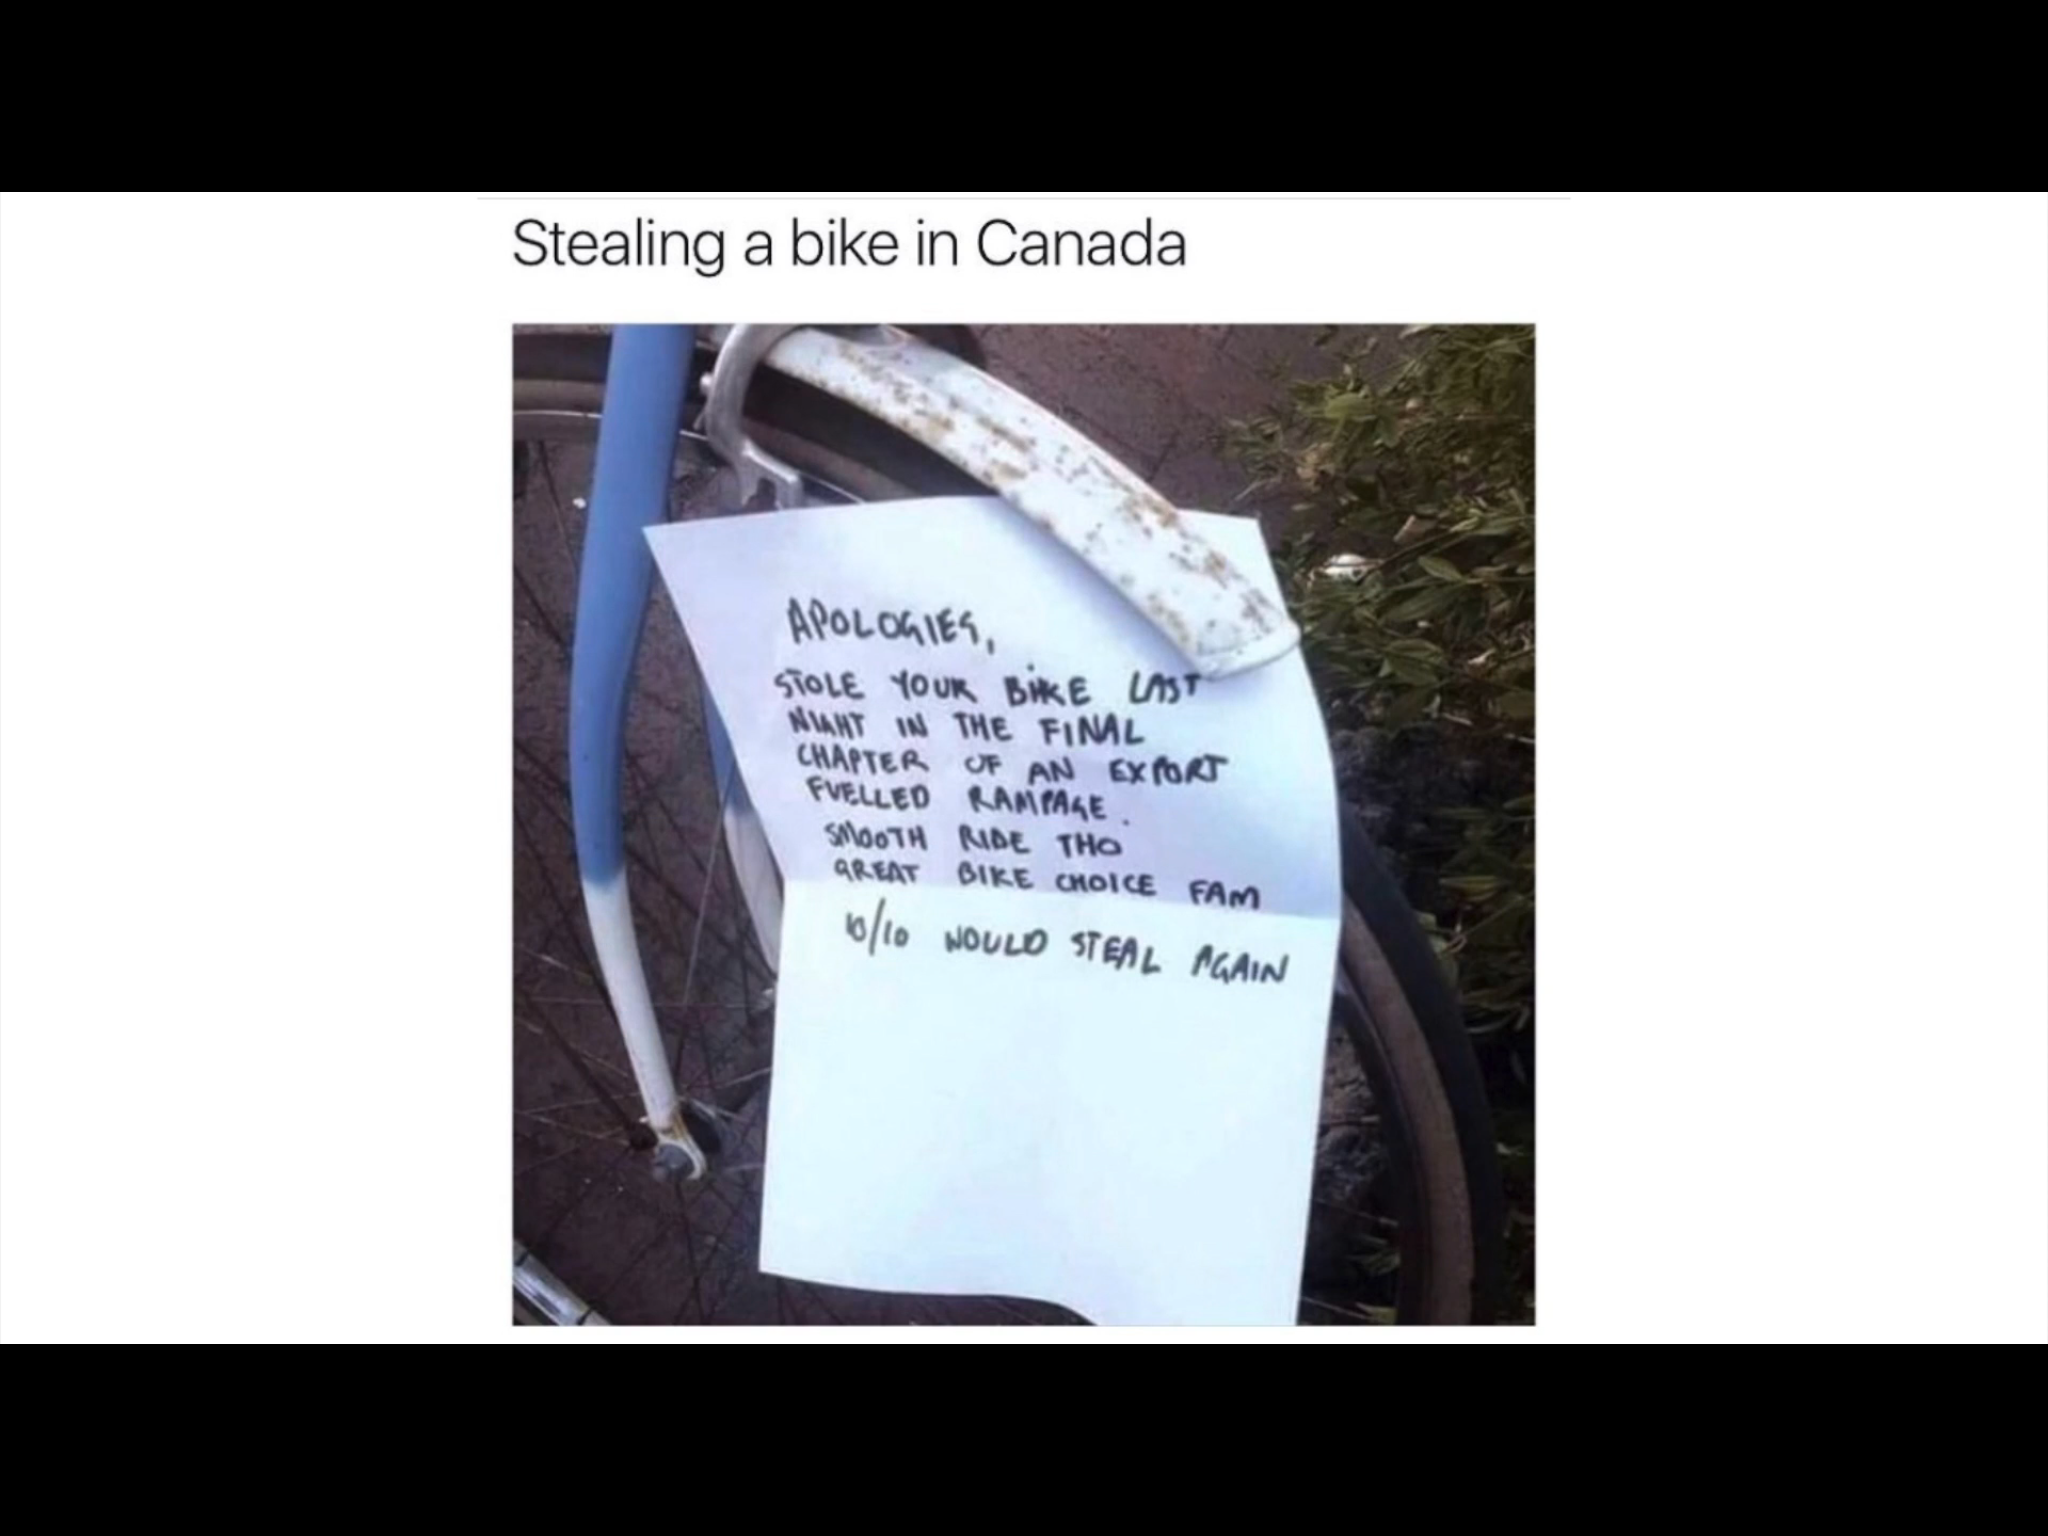 Stealing a bike in Canada
APOLOGIES,
STOLE YOUR BIKE LAST
NIGHT IN THE FINAL
CHAPTER OF AN EXPORT
FUELLED RAMPAGE.
SMOOTH RIDE THO
GREAT BIKE CHOICE FAM
10/10 WOULD STEAL AGAIN